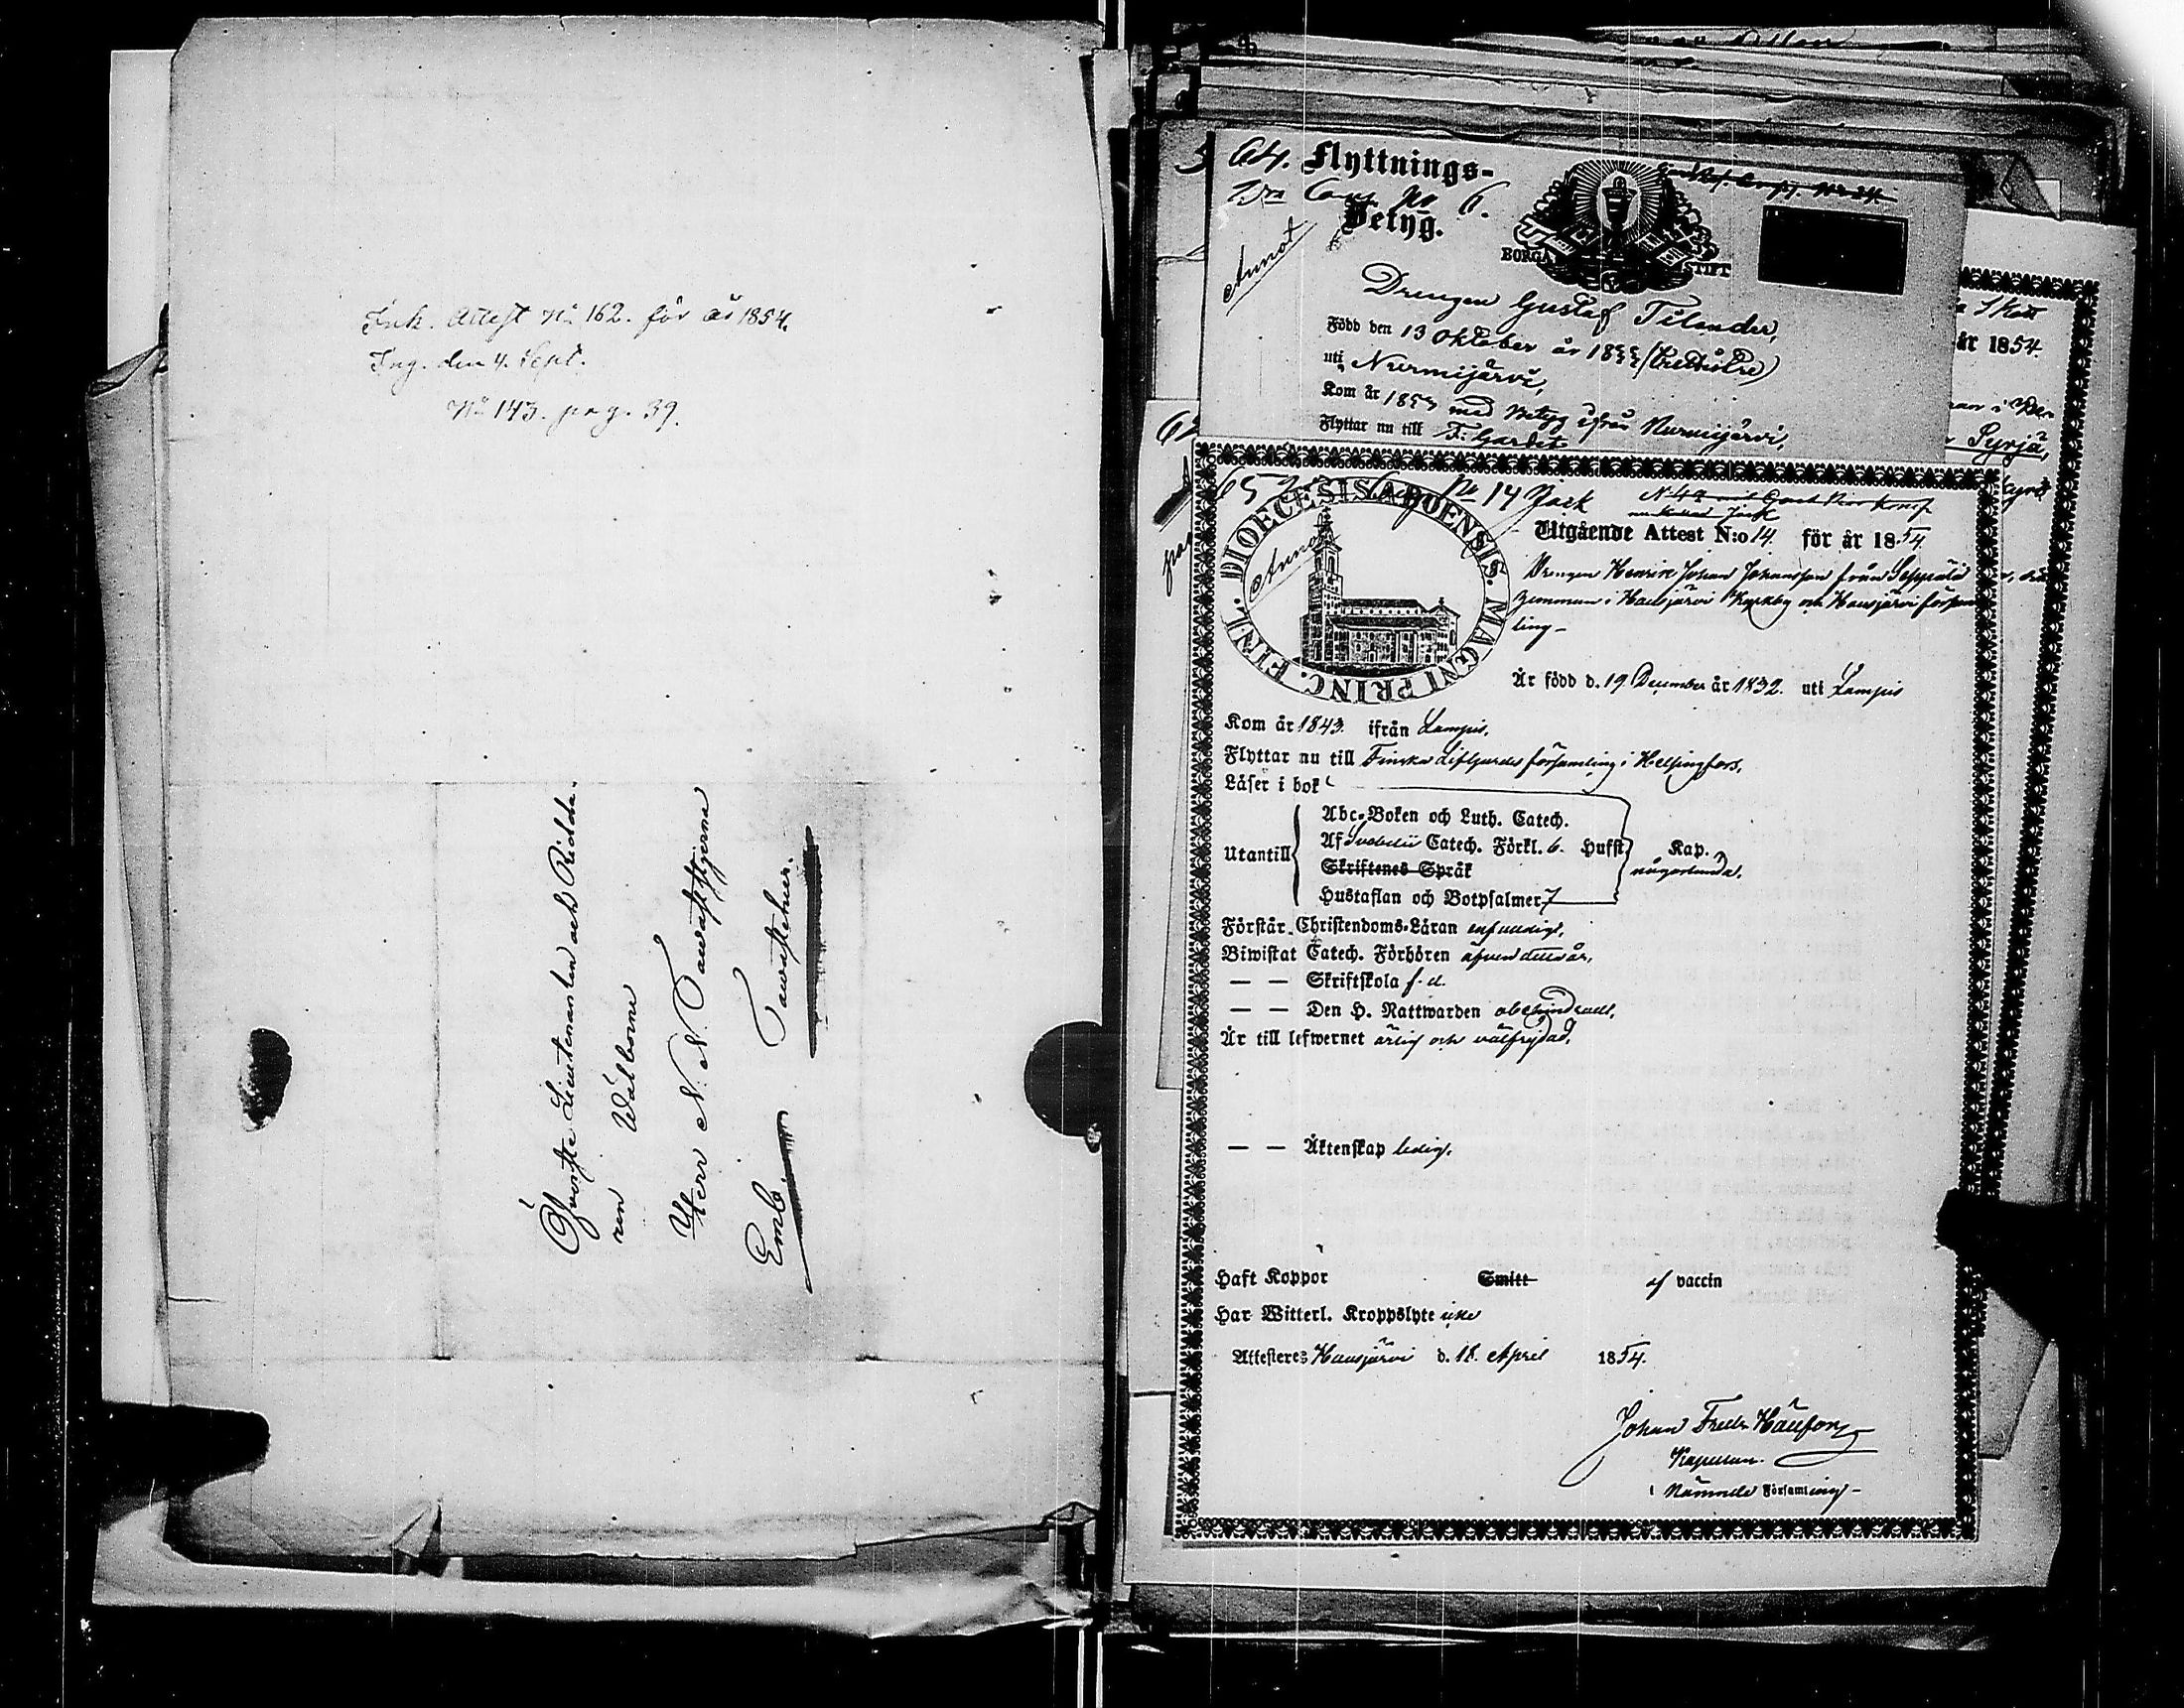 Ink. Attest No 162. för år 1854.
Ing. den 4. Sept.
No 143. pag. 39.
Öfverste Lieutenanten och Ridda-
ren Wälborne
Herr N. N. Tawaststjerna
Emb. Tawastehus.
64. Flyttnings-
No 6.
Betyg.
Annot
BORGÅ STIFT
Drengen Gustaf Tilander,
Född den 13 Oktober år 1833 (Trettiotre)
uti Nurmijärvi,
Kom år 1853 med Betyg ifrån Nurmijärvi,
Flyttar nu till F: Gardet
år 1854.
Syrjä,
65 No 14 Jack
DIOECESIS ABOENSIS. MAGNI PRINC. FINL.
Utgående Attest N:o 14 för år 1854
Drengen Henrik Johan Johansson från Seppälä
hemman i Hausjärvi Kyrkby och Hausjärvi försam
ling-
Är född d. 19 December år 1832. uti Lampis
Kom år 1843. ifrån Lampis.
Flyttar nu till Finska Lifgardes församling i Helsingfors.
Läser i bok
Abc-Boken och Luth. Catech.
Utantill Af Svebelii Catech. Förkl. 6. Hufst. Kap.
Skriftenes Språk någorlunda.
Hustaflan och Botpsalmer 7
Förstår Christendoms-Läran enfaldigt.
Biwistat Catech. Förhören äfven detta år,
— — Skriftskola f. d.
— — Den H. Nattwarden obehindradt.
Är till lefwernet ärlig och välfrejdad.
— — Äktenskap ledig.
Haft Koppor Smitt af vaccin
Har Witterl. Kroppslyte icke
Attesteres Hausjärvi d. 18. April 1854.
Johan Fredr.
Kapellan.
i Nämnde Församling-